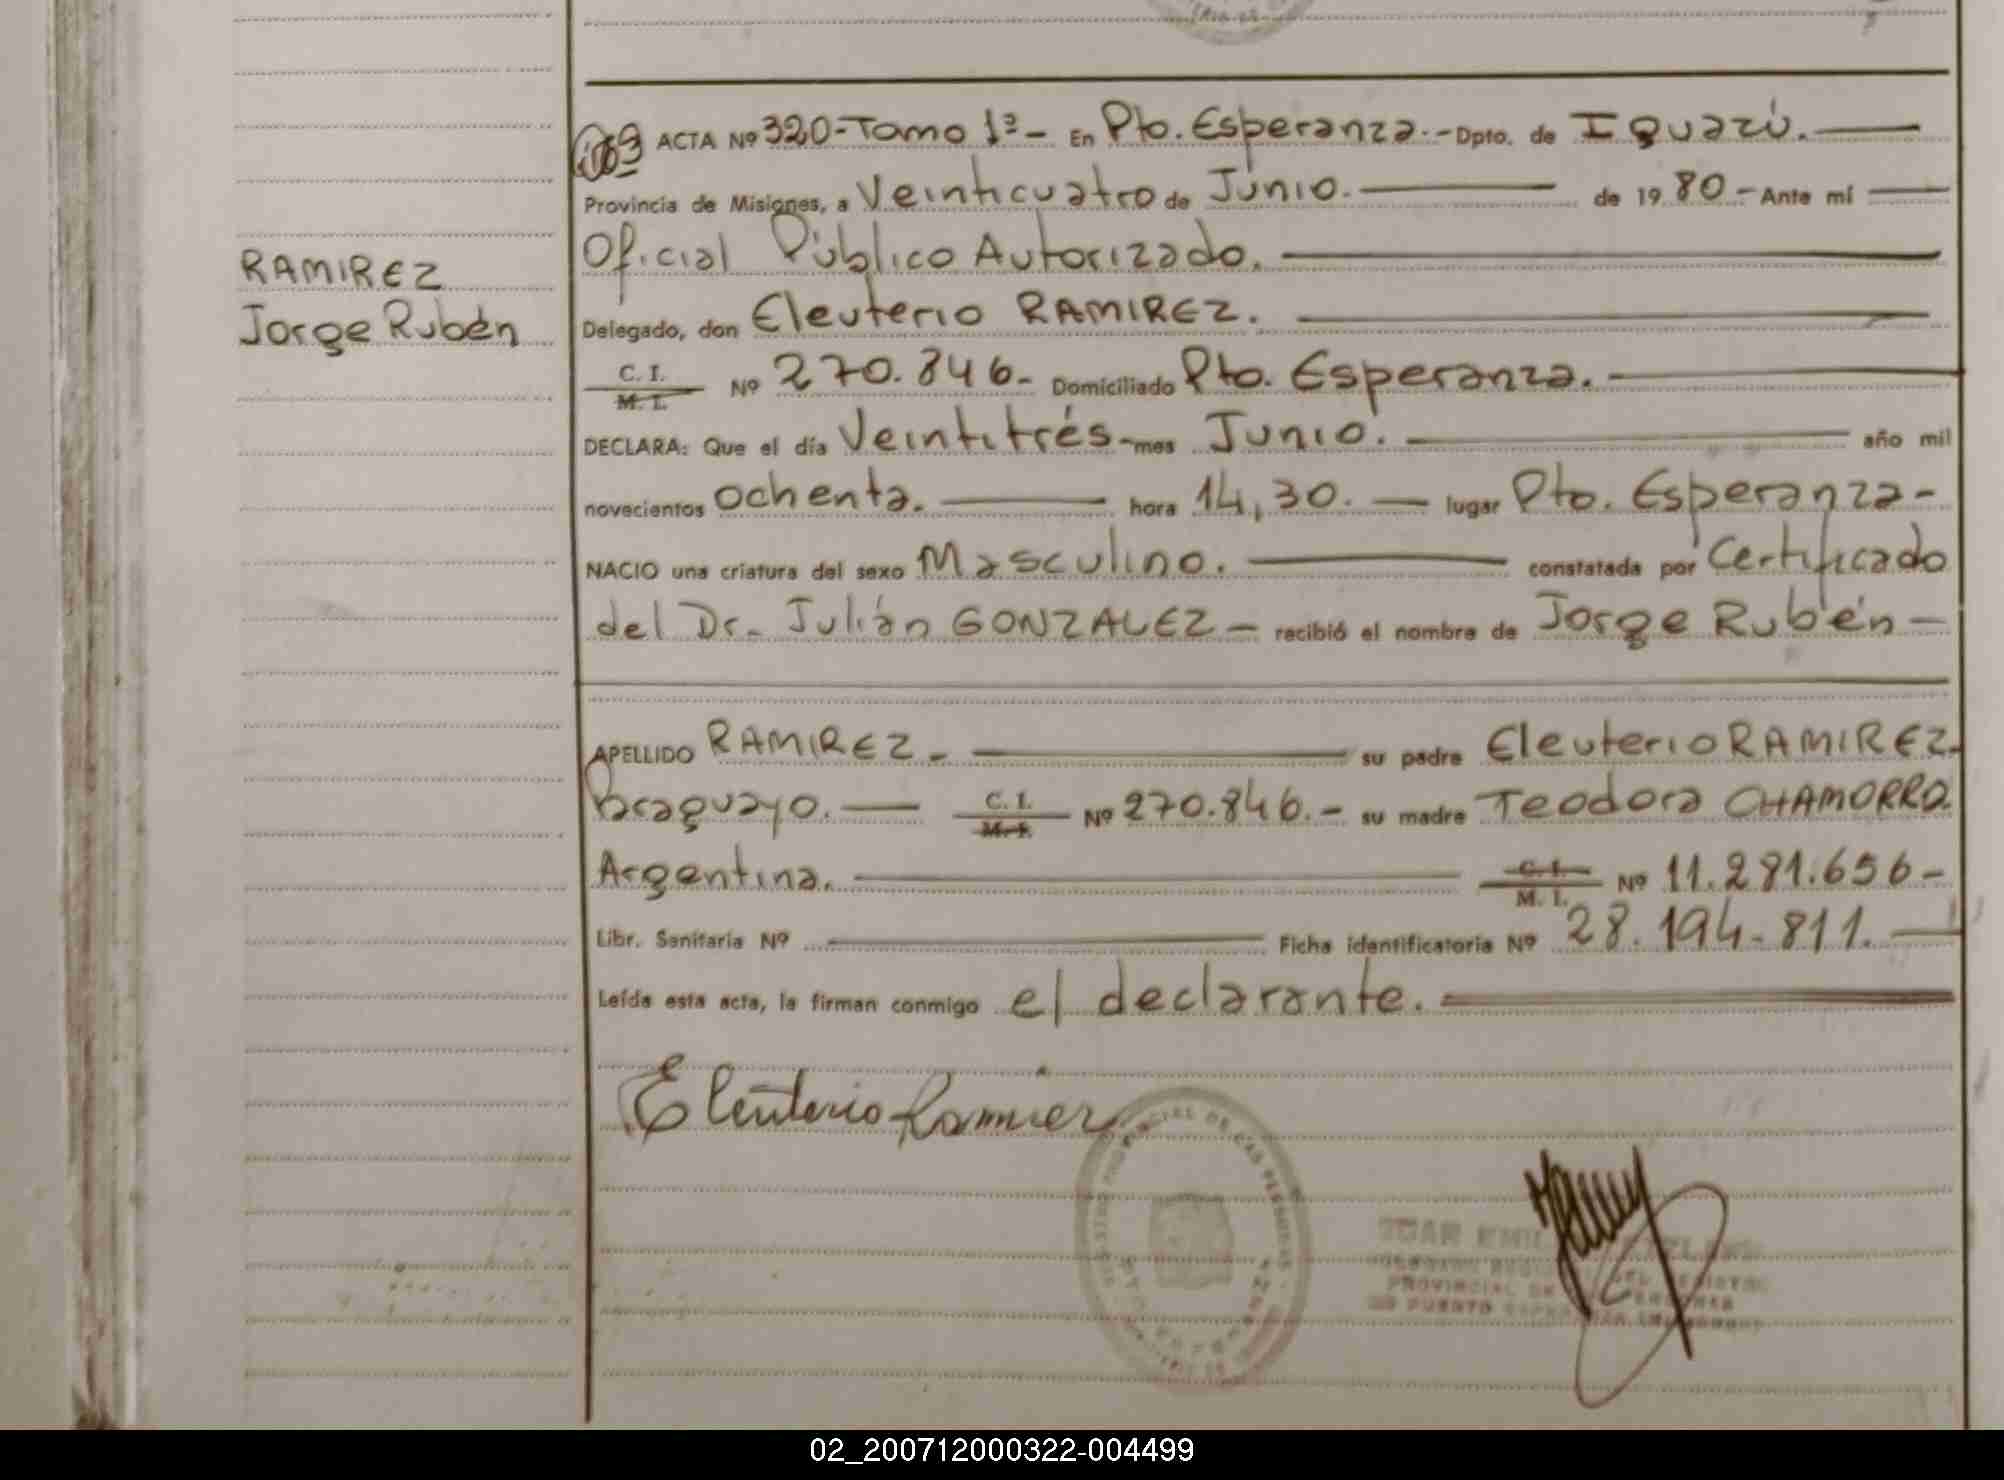 ACTA Nº 320-Tomo 1º- En Pto. Esperanza.- Dpto. de Iguazú.
Provincia de Misiones, a Veinticuatro de Junio. de 1980.- Ante mí
Oficial Público Autorizado.
RAMIREZ
Jorge Rubén
Delegado, don Eleuterio RAMIREZ.
C. I.
M. I.
Nº 270.846.- Domiciliado Pto. Esperanza.
DECLARA: Que el día Veintitrés.- mes Junio. año mil
novecientos ochenta. hora 14,30. lugar Pto. Esperanza-
NACIO una criatura del sexo Masculino. constatada por Certificado
del Dr. Julián GONZALEZ- recibió el nombre de Jorge Rubén-
APELLIDO RAMIREZ- su padre Eleuterio RAMIREZ.
Paraguayo. C. I. Nº 270.846.- su madre Teodora CHAMORRO.
M. I.
Argentina. C. I. Nº 11.281.656-
M. I.
Libr. Sanitaria Nº Ficha identificatoria Nº 28.194.811.
Leída esta acta, la firman conmigo el declarante.
Eleuterio Ramirez
PROVINCIAL DE
PUERTO
02_200712000322-004499